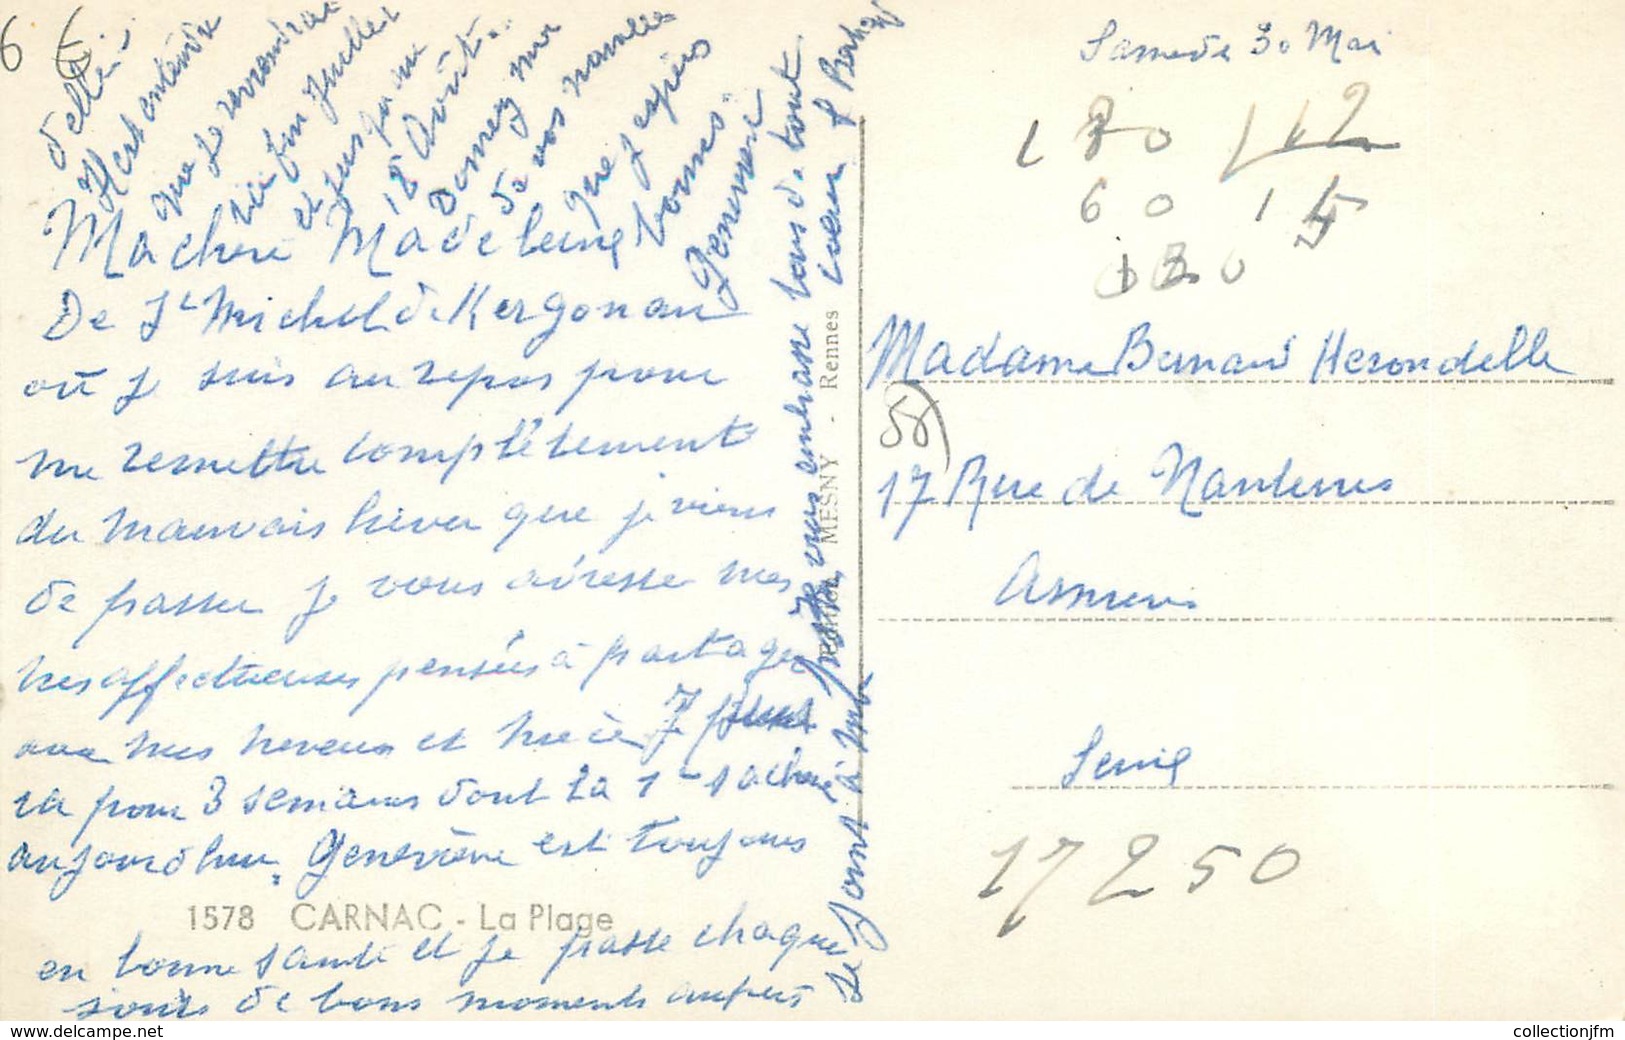 Samedi 30 Mai
Ma chère Madeleine
De St Michel de Kergonan
où je suis au repos pour
me remettre complètement
du mauvais hiver que je viens
de passer je vous adresse mes
très affectueuses pensées à partager
avec mes neveux et nièces. Je suis
ici pour 3 semaines dont la 1re s'achève
aujourd'hui. Geneviève est toujours
en bonne santé et je passe chaque
jour de bons moments auprès
d'elle.
Il est entendu
que je reviendrai
ici fin Juillet
et jusqu'au
18 Août..
Donnez moi
de vos nouvelles
que j'espère
bonnes.
Geneviève
se joint à moi pour vous embrasser tous de tout
cœur
1578 CARNAC - La Plage
MESNY - Rennes
180 112
60 15
Madame Bernard Herondelle
58
17 Rue de Nanterre
Asnières
Seine
17250
www.delcampe.net
collectionjfm